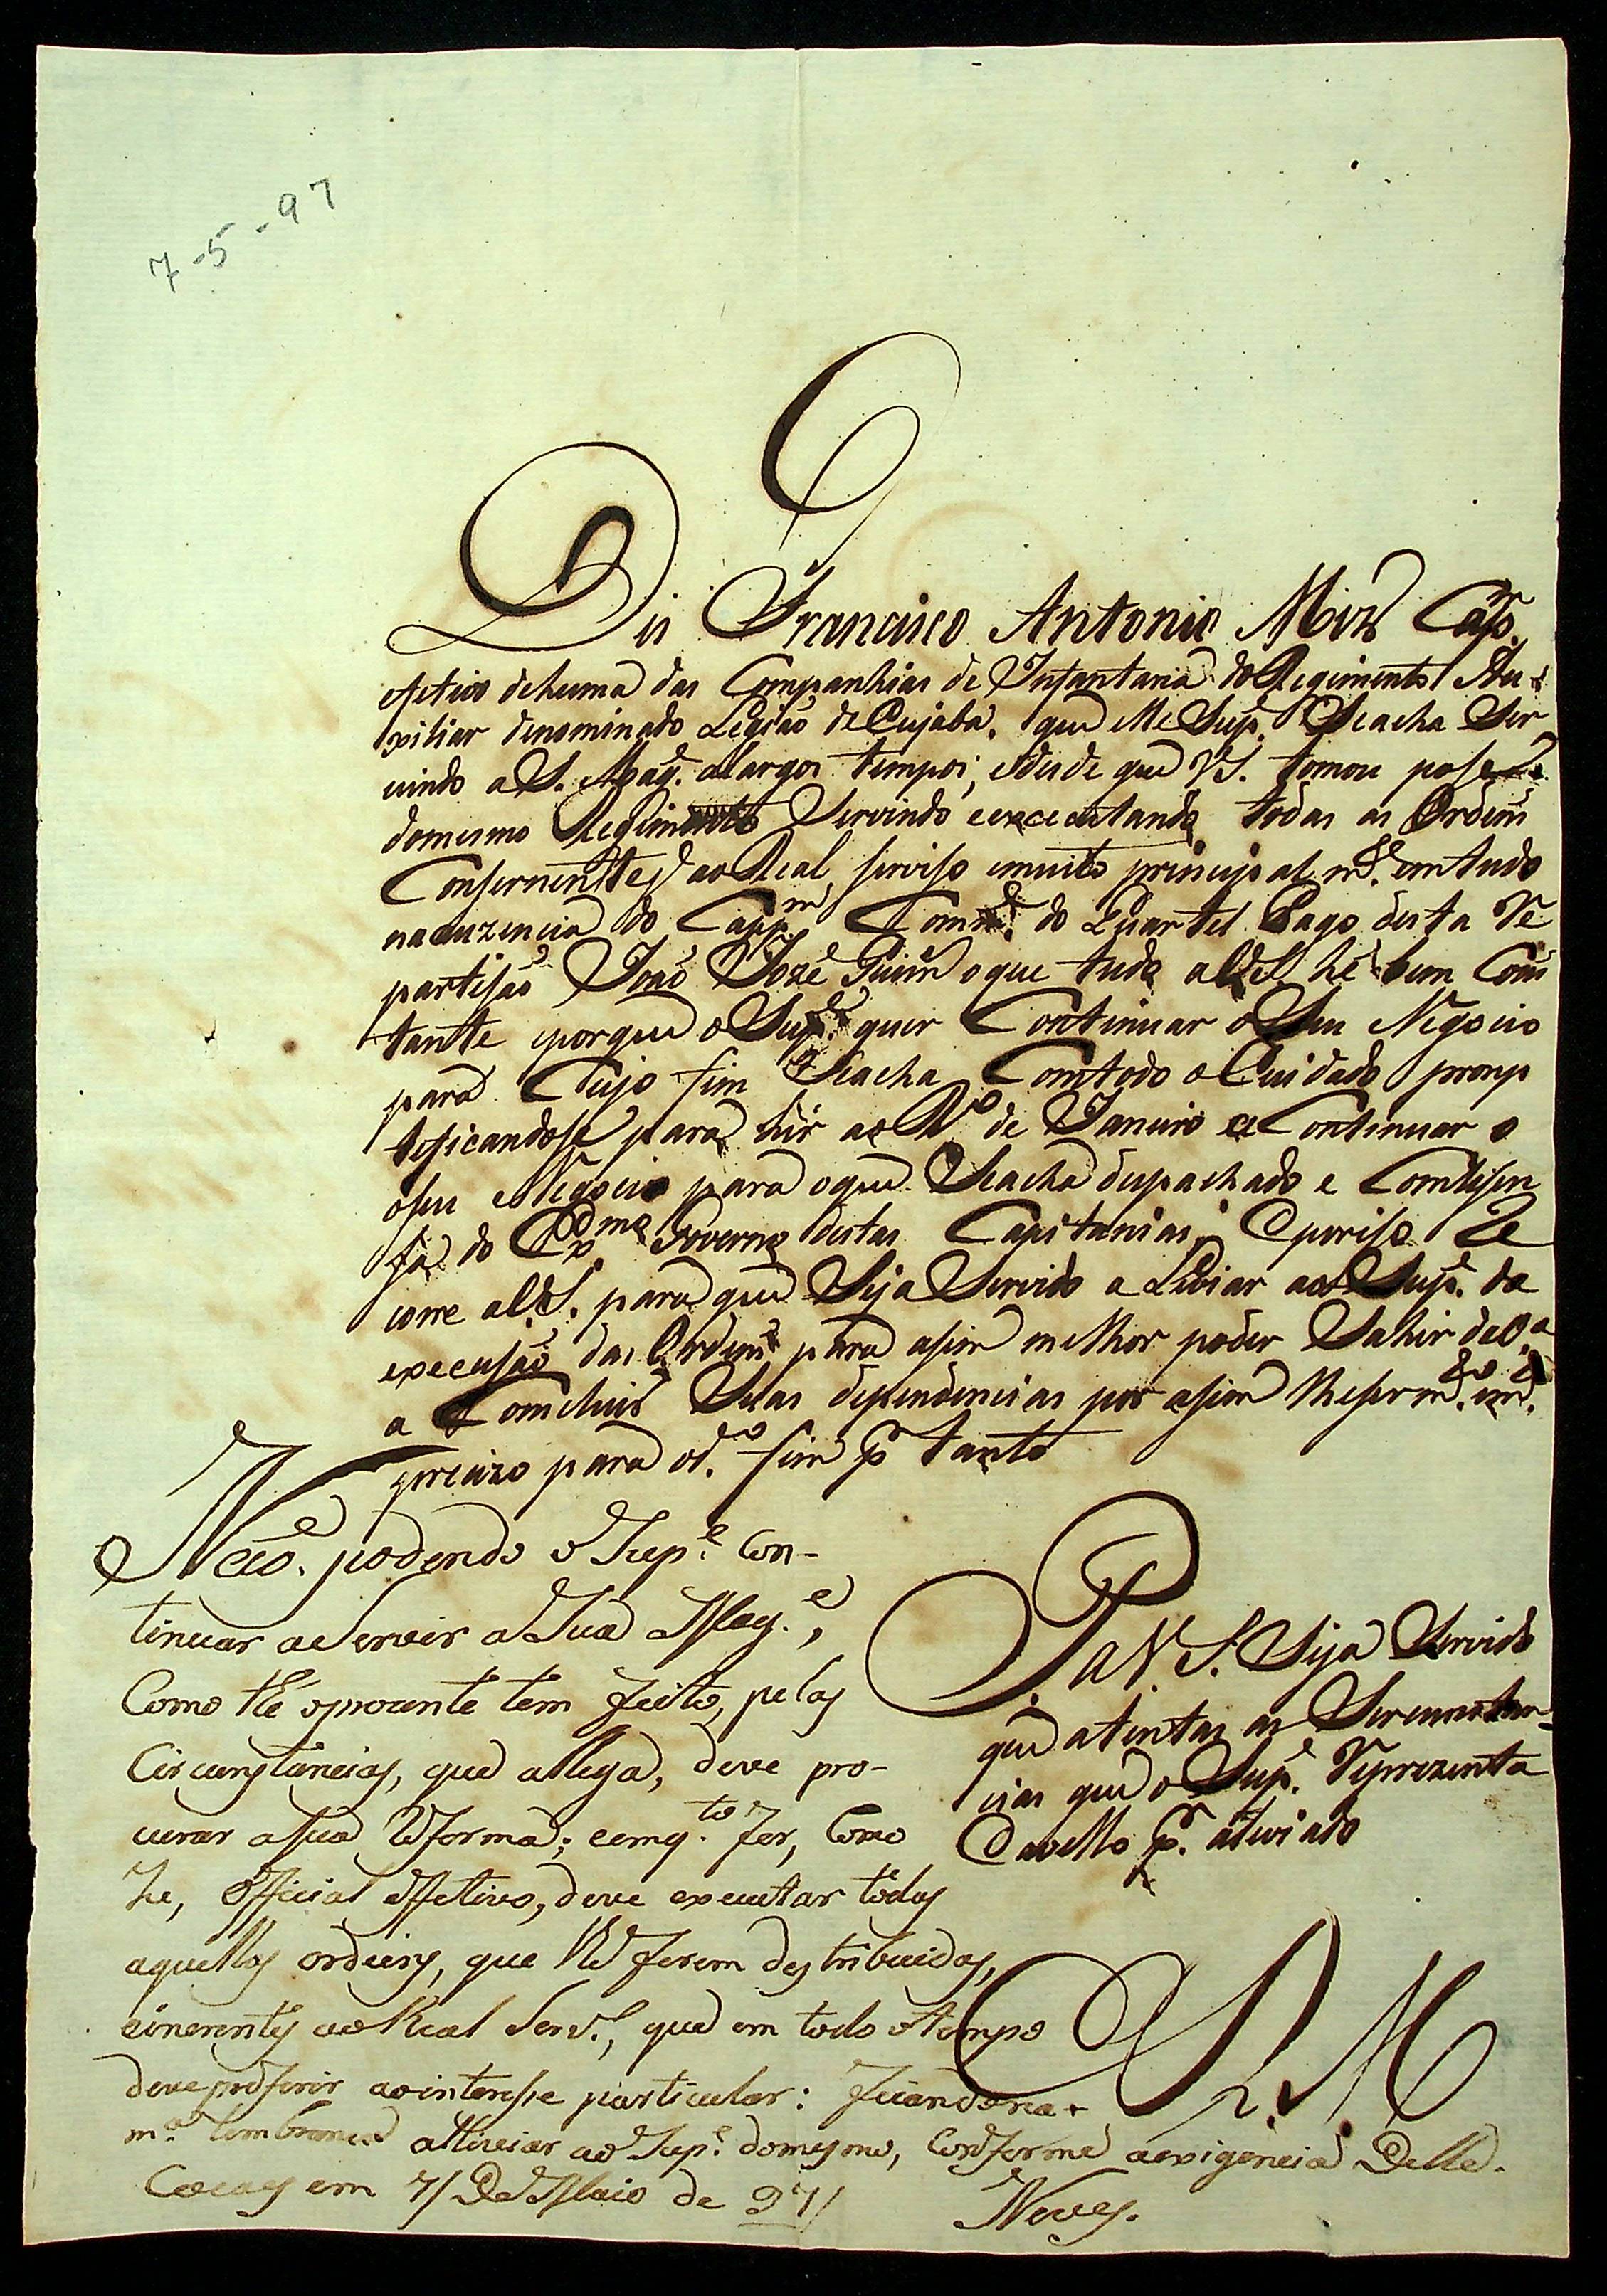 7-5-97
Diz Francisco Antonio Miz Cap.
efetivo dehuma das Companhias de Infantaria do Regimento Au-
xiliar denominado Legião de Cujaba, que elle Sup.e Seacha Ser
vindo a S. Mag.e a largos tempos, edesde que VS. tomou pose
domesmo Regimento Servindo e executando todas as Ordens
Consernentes ao Real serviso emuito principal m.te emtudo
na auzencia do Capp.m Com.de do Quartel Pago desta Re
partisão João Jozé Guim oque tudo a V.S. hé bem Cons
tante eporque o Sup.e quer Continuar o Seu Negocio
para Cujo fim Seacha Comtodo o Cuidado promp
teficandose para hir ao R.o de Janeiro a Continuar o
oseu Negocio para oque Seacha despachado e Comlisen
sa do Ex.mo Governo destas Capitanias; Eporiso Re
corre a V.S. para que Seja Servido a Liviar ao Sup.e da
execusão das Ordens para asim melhor poder Sahir de
a Comcluir Suas dependencias por asim lhe ser m.to
precizo para od.o fim P.r tanto
P. a V. S. Seja Servido
que atentas as Sircunstan-
cias que o Sup.e Reprezenta
Oavello P.r aliviado
E R M
Não podendo o Sup.e con-
tinuar a Servir a Sua Mag.e,
Como thé oprezente tem feito, pelas
Circunstancias, que allega, deve pro-
curar a Sua Reforma; eemq.to for, Como
he, Official effetivo, deve executar todas
aquellas ordens, que lhe forem destribuidas,
einerentes ao Real Serv.o, que em todo o tempo
deve preferir ao interesse particular: ficandona
m.a lembrança alliviar ao Sup.e domesmo, Conforme aexigencia Delle.
Cocaes em 7/ De Maio de 97/
Neves.